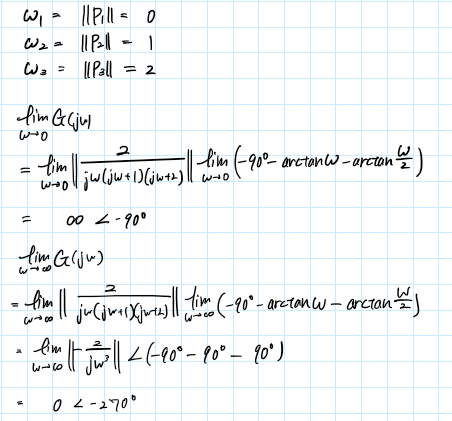 ω₁ = ||P₁|| = 0
ω₂ = ||P₂|| = 1
ω₃ = ||P₃|| = 2
lim_{ω→0} G(jω)
= lim_{ω→0} || 2 / (jω(jω+1)(jω+2)) || lim_{ω→0} (-90° - arctan ω - arctan ω/2)
= ∞ ∠ -90°
lim_{ω→∞} G(jω)
= lim_{ω→∞} || 2 / (jω(jω+1)(jω+2)) || lim_{ω→∞} (-90° - arctan ω - arctan ω/2)
= lim_{ω→∞} || -2 / (jω³) || ∠ (-90° - 90° - 90°)
= 0 ∠ -270°